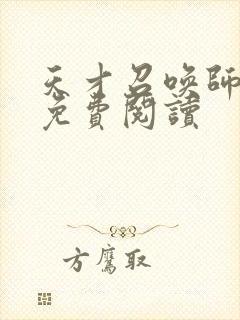 天才召唤師
免費閱讀
方鷹取